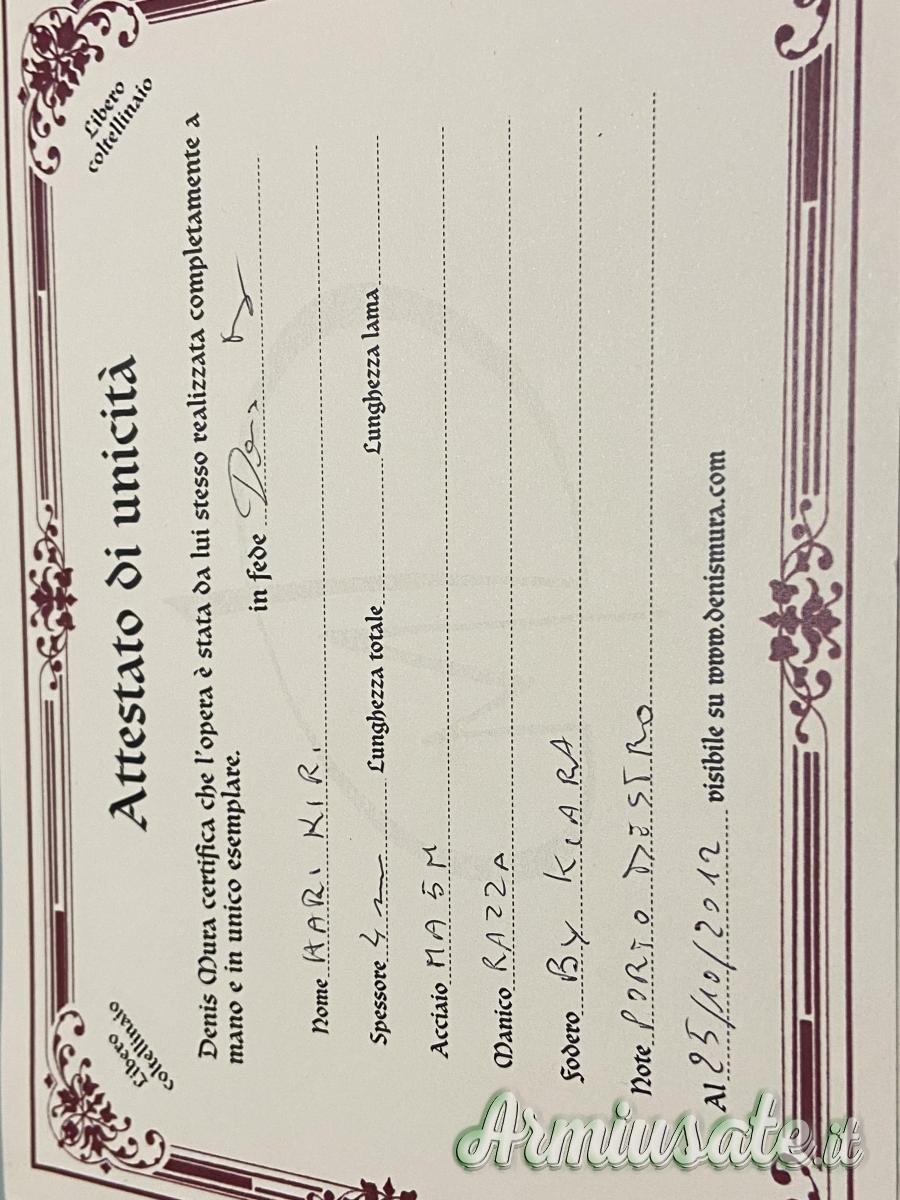 Libero
coltellinaio
Libero
coltellinaio
Attestato di unicità
Denis Mura certifica che l'opera è stata da lui stesso realizzata completamente a
mano e in unico esemplare.
in fede
Nome HARI KIRI
Spessore 4 Lunghezza totale Lunghezza lama
Acciaio MA5M
Manico RAZZA
Fodero BY KIARA
Note PORTO DESTRO
Al 25/10/2012 visibile su www.denismura.com
Armiusate.it